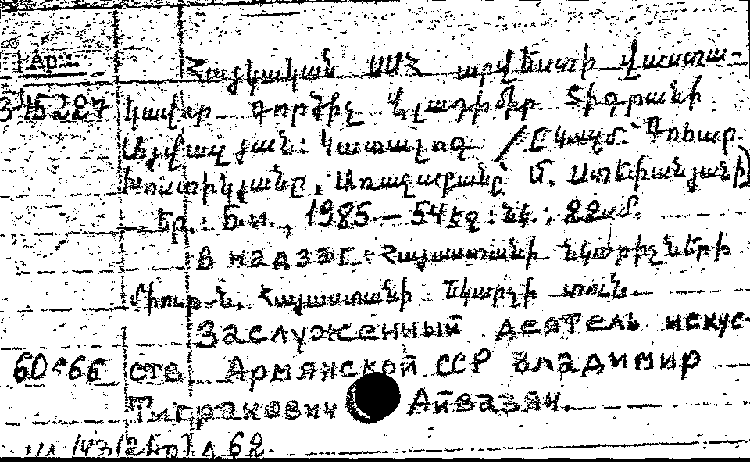 Арм.
Հայկական ՍՍՀ արվեստի վաստա-
345227 կավոր գործիչ Վլադիմիր Տիգրանի
Այվազյան: Կատալոգ / Կազմ. Գոհար
Խոստիկյանը, Առաջաբանը Մ. Ստեփանյանի)
Եր.: Բ.ի., 1985.— 54 էջ: նկ.; 22 սմ.
В надзаг.: Հայաստանի նկարիչների
միություն. Հայաստանի նկարչի տուն.
Заслуженный деятель искус-
ств Армянской ССР Владимир
Тигранович Айвазян.